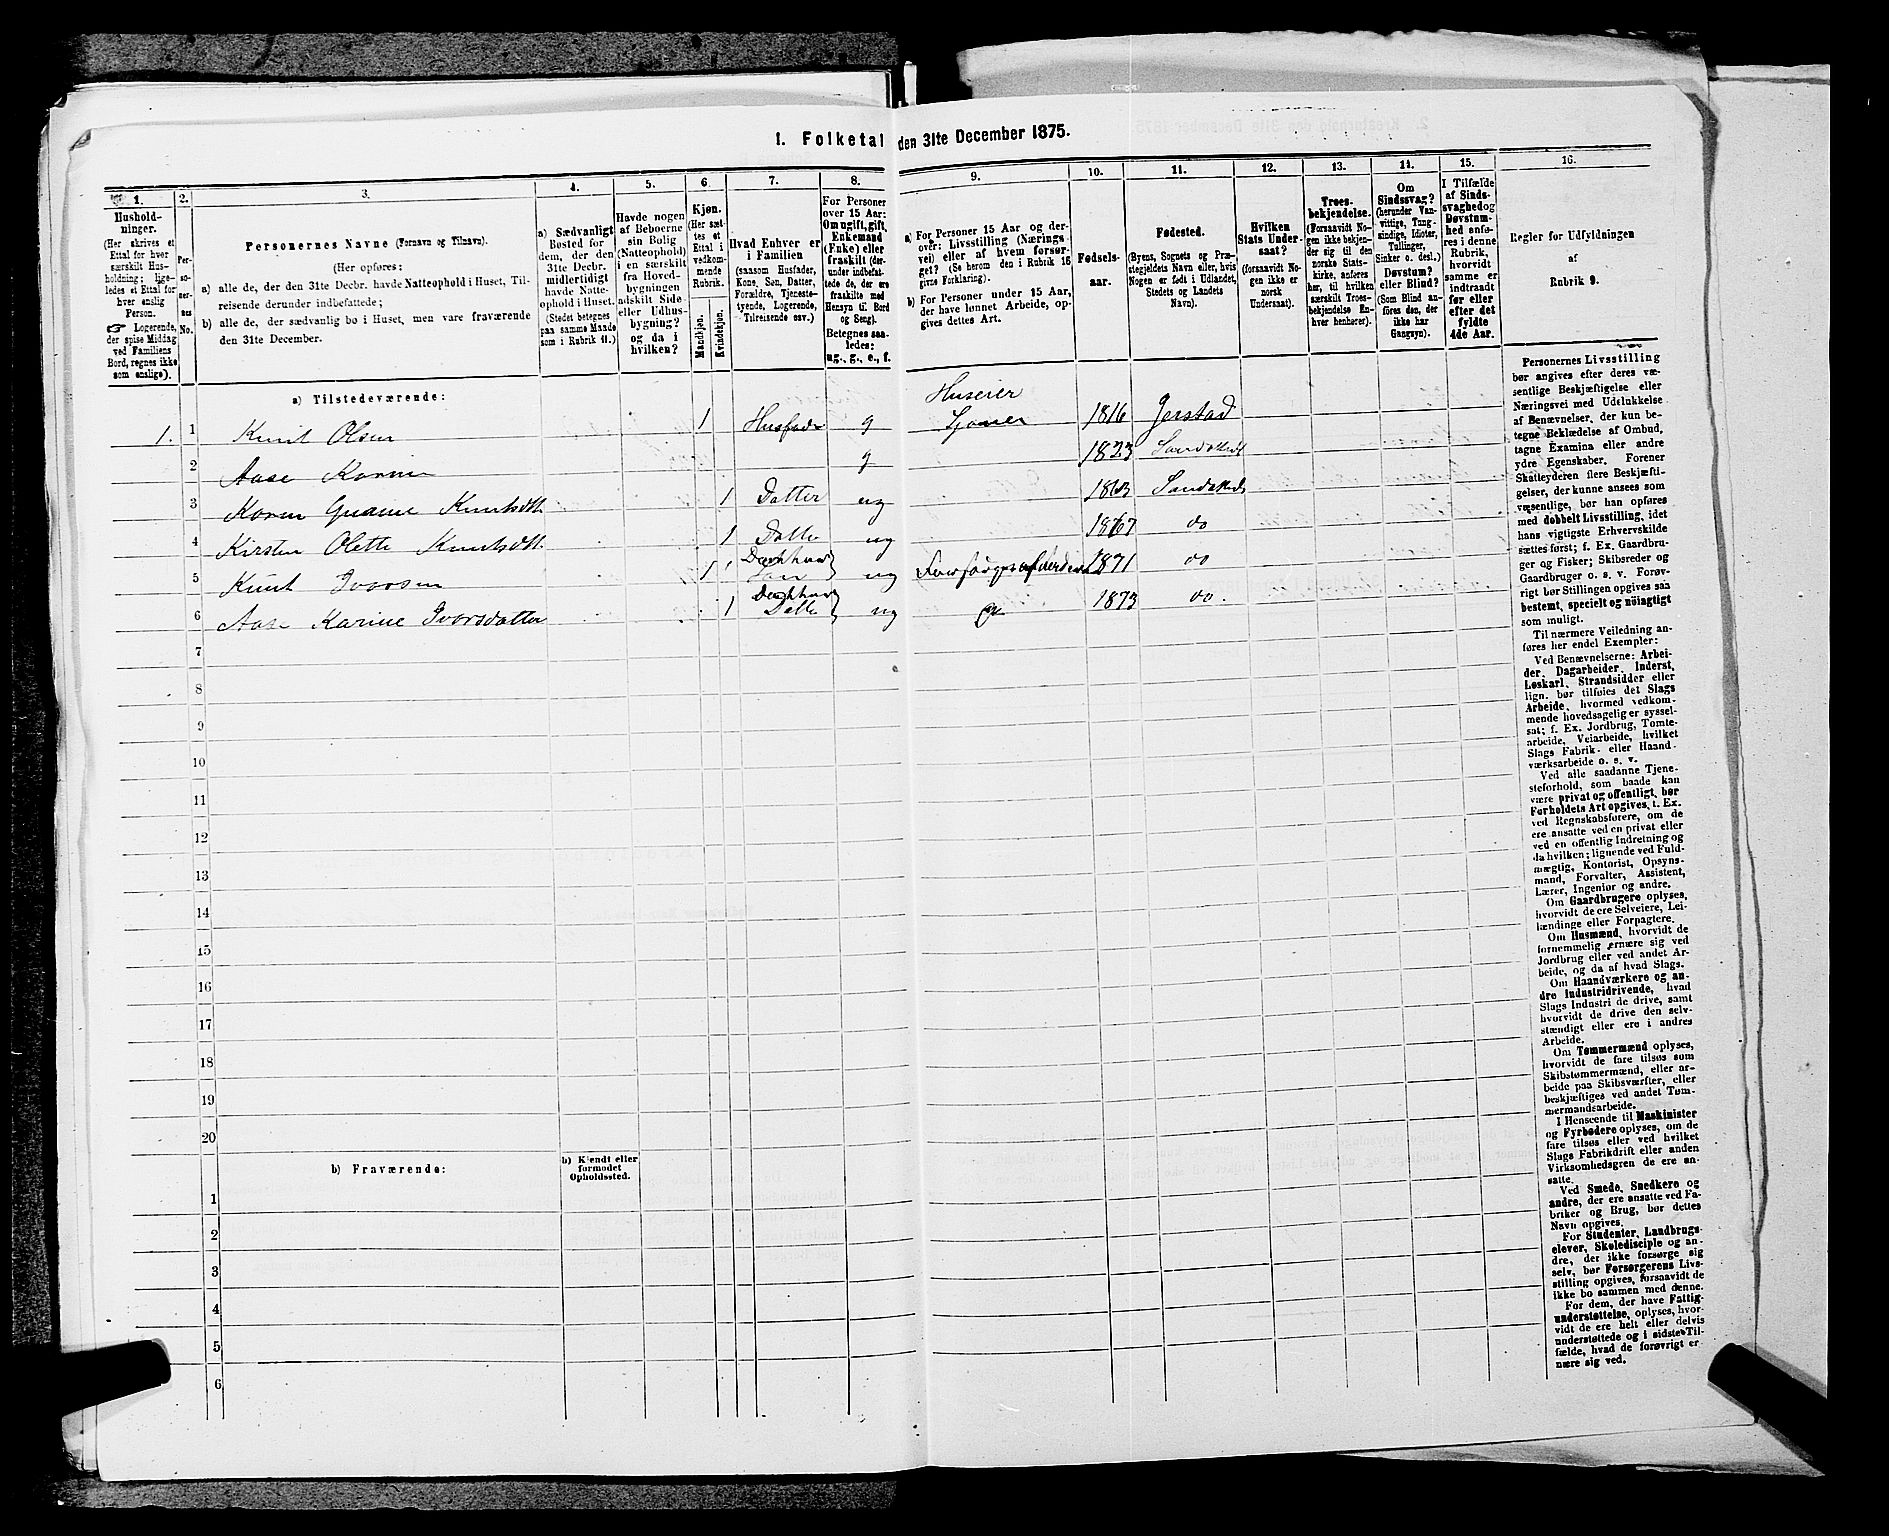 1. Folketal den 31te December 1875.
1.
Hushold-
ninger.
(Her skrives et
Ettal for hver
særskilt Hus-
holdning; lige-
ledes et Ettal for
hver enslig
Person.
☞ Logerende,
der spise Middag
ved Familiens
Bord, regnes ikke
som enslige).
2.
Per-
so-
ner-
nes
No.
3.
Personernes Navne (Fornavn og Tilnavn).
(Her opføres:
a) alle de, der den 31te Decbr. havde Natteophold i Huset, Til-
reisende derunder indbefattede;
b) alle de, der sædvanlig bo i Huset, men vare fraværende
den 31te December.
4.
a) Sædvanligt
Bosted for
dem, der den
31te Decbr.
midlertidigt
havde Natte-
ophold i Huset.
(Stedet betegnes
paa samme Maade
som i Rubrik 11.)
5.
Havde nogen
af Beboerne
sin Bolig
(Natteophold)
i en særskilt
fra Hoved-
bygningen
adskilt Side-
eller Udhus-
bygning?
og da i
hvilken?
6.
Kjøn.
(Her sæt-
tes et
Ettal i
vedkom-
mende
Rubrik.
Mandkjøn.
Kvindekjøn.
7.
Hvad Enhver er
i Familien
(saasom Husfader,
Kone, Søn, Datter,
Forældre, Tjeneste-
tyende, Logerende,
Tilreisende osv.)
8.
For Personer
over 15 Aar:
Om ugift, gift,
Enkemand
(Enke) eller
fraskilt (der-
under indbefat-
tede de, der ere
fraskilte med
Hensyn til Bord
og Seng).
Betegnes saa-
ledes:
ug., g., e., f.
9.
a) For Personer 15 Aar og der-
over: Livsstilling (Nærings-
vei) eller af hvem forsør-
get? (Se herom den i Rubrik 16
givne Forklaring).
b) For Personer under 15 Aar,
der have lønnet Arbeide, op-
gives dettes Art.
10.
Fødsels-
aar.
11.
Fødested.
(Byens, Sognets og Præ-
stegjeldets Navn eller, hvis
Nogen er født i Udlandet,
Stedets og Landets
Navn).
12.
Hvilken
Stats Under-
saat?
(forsaavidt No-
gen ikke er
norsk
Undersaat).
13.
Troes-
bekjendelse.
(Forsaavidt No-
gen ikke bekjen-
der sig til den
norske Stats-
kirke, anføres
her, til hvilken
særskilt Troes-
bekjendelse En-
hver henhører).
14.
Om
Sindssvag?
(herunder Van-
vittige, Tung-
sindige, Idioter,
Tullinger,
Sinker o. desl.)
Døvstum?
eller Blind?
(Som Blind an-
føres den, der
ikke har
Gangsyn).
15.
I Tilfælde
af Sinds-
svaghed og
Døvstum-
hed anfø-
res i denne
Rubrik,
hvorvidt
samme er
indtraadt
før eller
efter det
fyldte
4de Aar.
16.
Regler for Udfyldningen
af
Rubrik 9.
a) Tilstedeværende:
1. 1 Knut Olsen 1 Husfader g Huseier 1816 Jerstad
2 Aase Karine g 1823
3 Karen Knutsdtt. 1 Datter ug 1863
4 Kirsten Olette Knutsdtt. 1 Datte ug 1867 do
5 Knut Ivorsen 1 ug 1871 do
6 Aase Karine Ivorsdatter 1 Datte ug 1873 do.
7
8
9
10
11
12
13
14
15
16
17
18
19
20
b) Fraværende:
b) Kjendt eller
formodet
Opholdssted.
1
2
3
4
5
6
Personernes Livsstilling
bør angives efter deres væ-
sentlige Beskjæftigelse eller
Næringsvei med Udelukkelse
af Benævnelser, der kun be-
tegne Beklædelse af Ombud,
tagne Examina eller andre
ydre Egenskaber. Forener
Skatteyderen flere Beskjæfti-
gelser, der kunne ansees som
væsentlige, bør han opføres
med dobbelt Livsstilling, idet
hans vigtigste Erhvervskilde
sættes først; f. Ex. Gaardbru-
ger og Fisker; Skibsreder og
Gaardbruger o. s. v. Forøv-
rigt bør Stillingen opgives saa
bestemt, specielt og nøiagtigt
som muligt.
Til nærmere Veiledning an-
føres her endel Exempler:
Ved Benævnelserne: Arbei-
der, Dagarbeider, Inderst,
Løskarl, Strandsidder eller
lign. bør tilføies det Slags
Arbeide, hvormed vedkom-
mende hovedsagelig er syssel-
sat; f. Ex. Jordbrug, Tomte-
arbeide, Veiarbeide, hvilket
Slags Fabrik- eller Haand-
værksarbeide o. s. v.
Ved alle saadanne Tjene-
steforhold, som baade kan
være privat og offentligt, bør
Forholdets Art opgives, t. Ex.
ved Regnskabsførere, om de
ere ansatte ved en privat eller
ved en offentlig Indretning og
da hvilken; lignende ved Fuld-
mægtig, Kontorist, Opsyns-
mand, Forvalter, Assistent,
Lærer, Ingeniør og andre.
Om Gaardbrugere oplyses,
hvorvidt de ere Selveiere, Lei-
lændinge eller Forpagtere.
Om Husmænd, hvorvidt de
fornemmelig ernære sig ved
Jordbrug eller ved andet Ar-
beide, og da af hvad Slags.
Om Haandværkere og an-
dre Industridrivende, hvad
Slags Industri de drive, samt
hvorvidt de drive den selv-
stændigt eller ere i andres
Arbeide.
Om Tømmermænd oplyses,
hvorvidt de fare tilsøs som
Skibstømmermænd, eller ar-
beide paa Skibsværfter, eller
beskjæftiges ved andet Tøm-
mermandsarbeide.
I Henseende til Maskinister
og Fyrbødere oplyses, om de
fare tilsøs eller ved hvilket
Slags Fabrikdrift eller anden
Virksomhedsgren de ere an-
satte.
Ved Smede, Snedkere og
andre, der ere ansatte ved Fa-
briker og Brug, bør dettes
Navn opgives.
For Studenter, Landbrugs-
elever, Skoledisciple og an-
dre, der ikke forsørge sig
selv, bør Forsørgerens Livs-
stilling opgives, forsaavidt de
ikke bo sammen med denne.
For dem, der have Fattig-
understøttelse, oplyses, hvor-
vidt de ere helt eller delvis
understøttede og i sidste Til-
fælde, hvad de forøvrigt er-
nære sig ved.